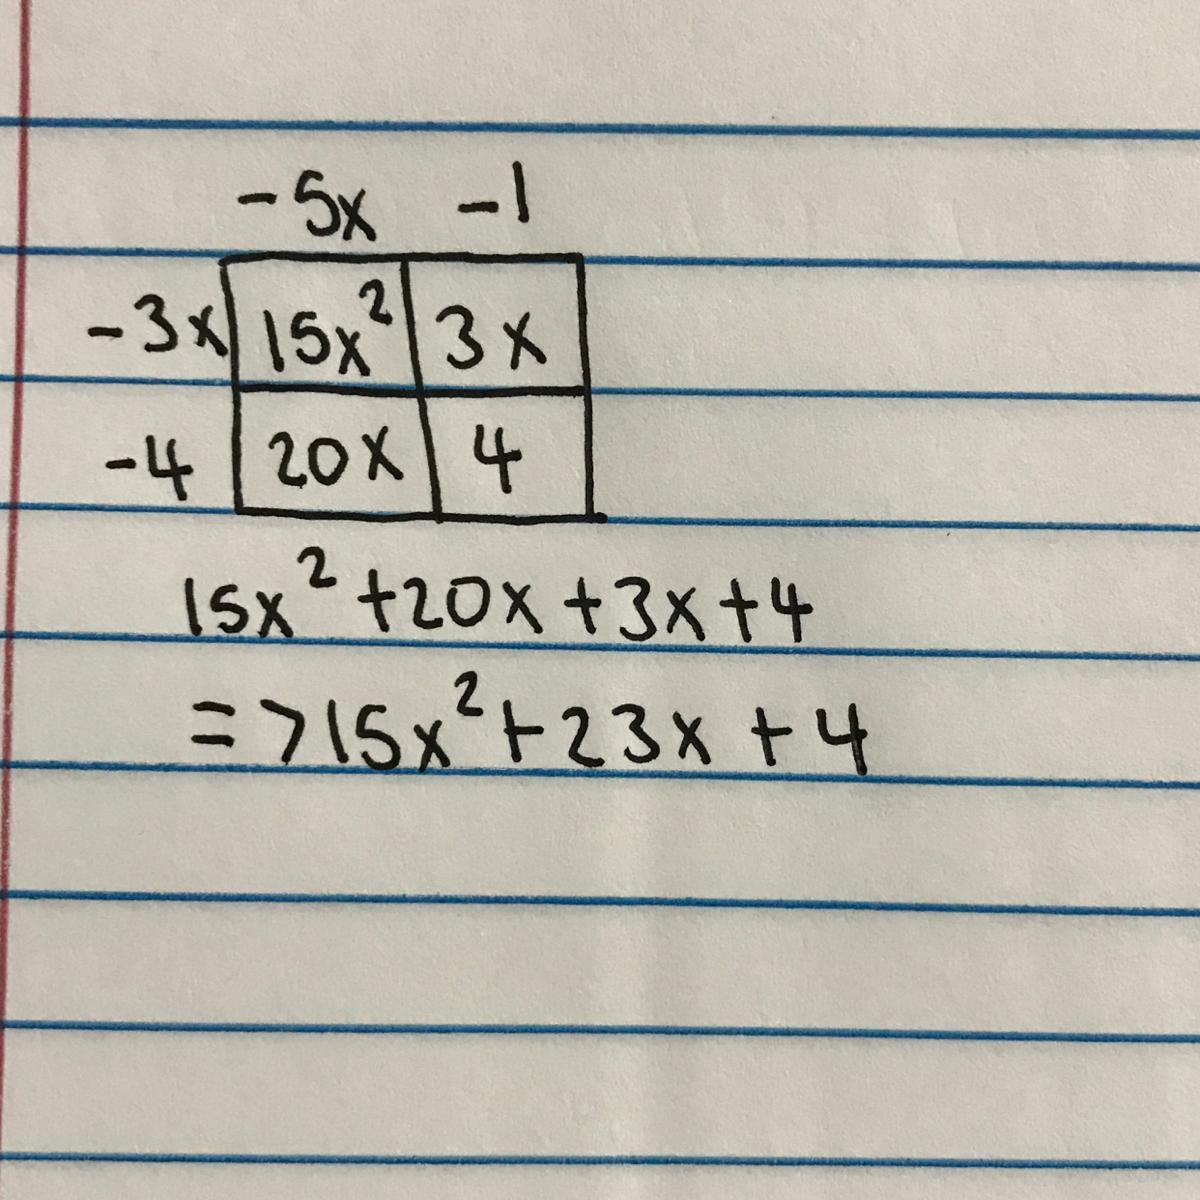 -5x -1
-3x 15x² 3x
-4 20x 4
15x² +20x +3x+4
=>15x²+23x +4